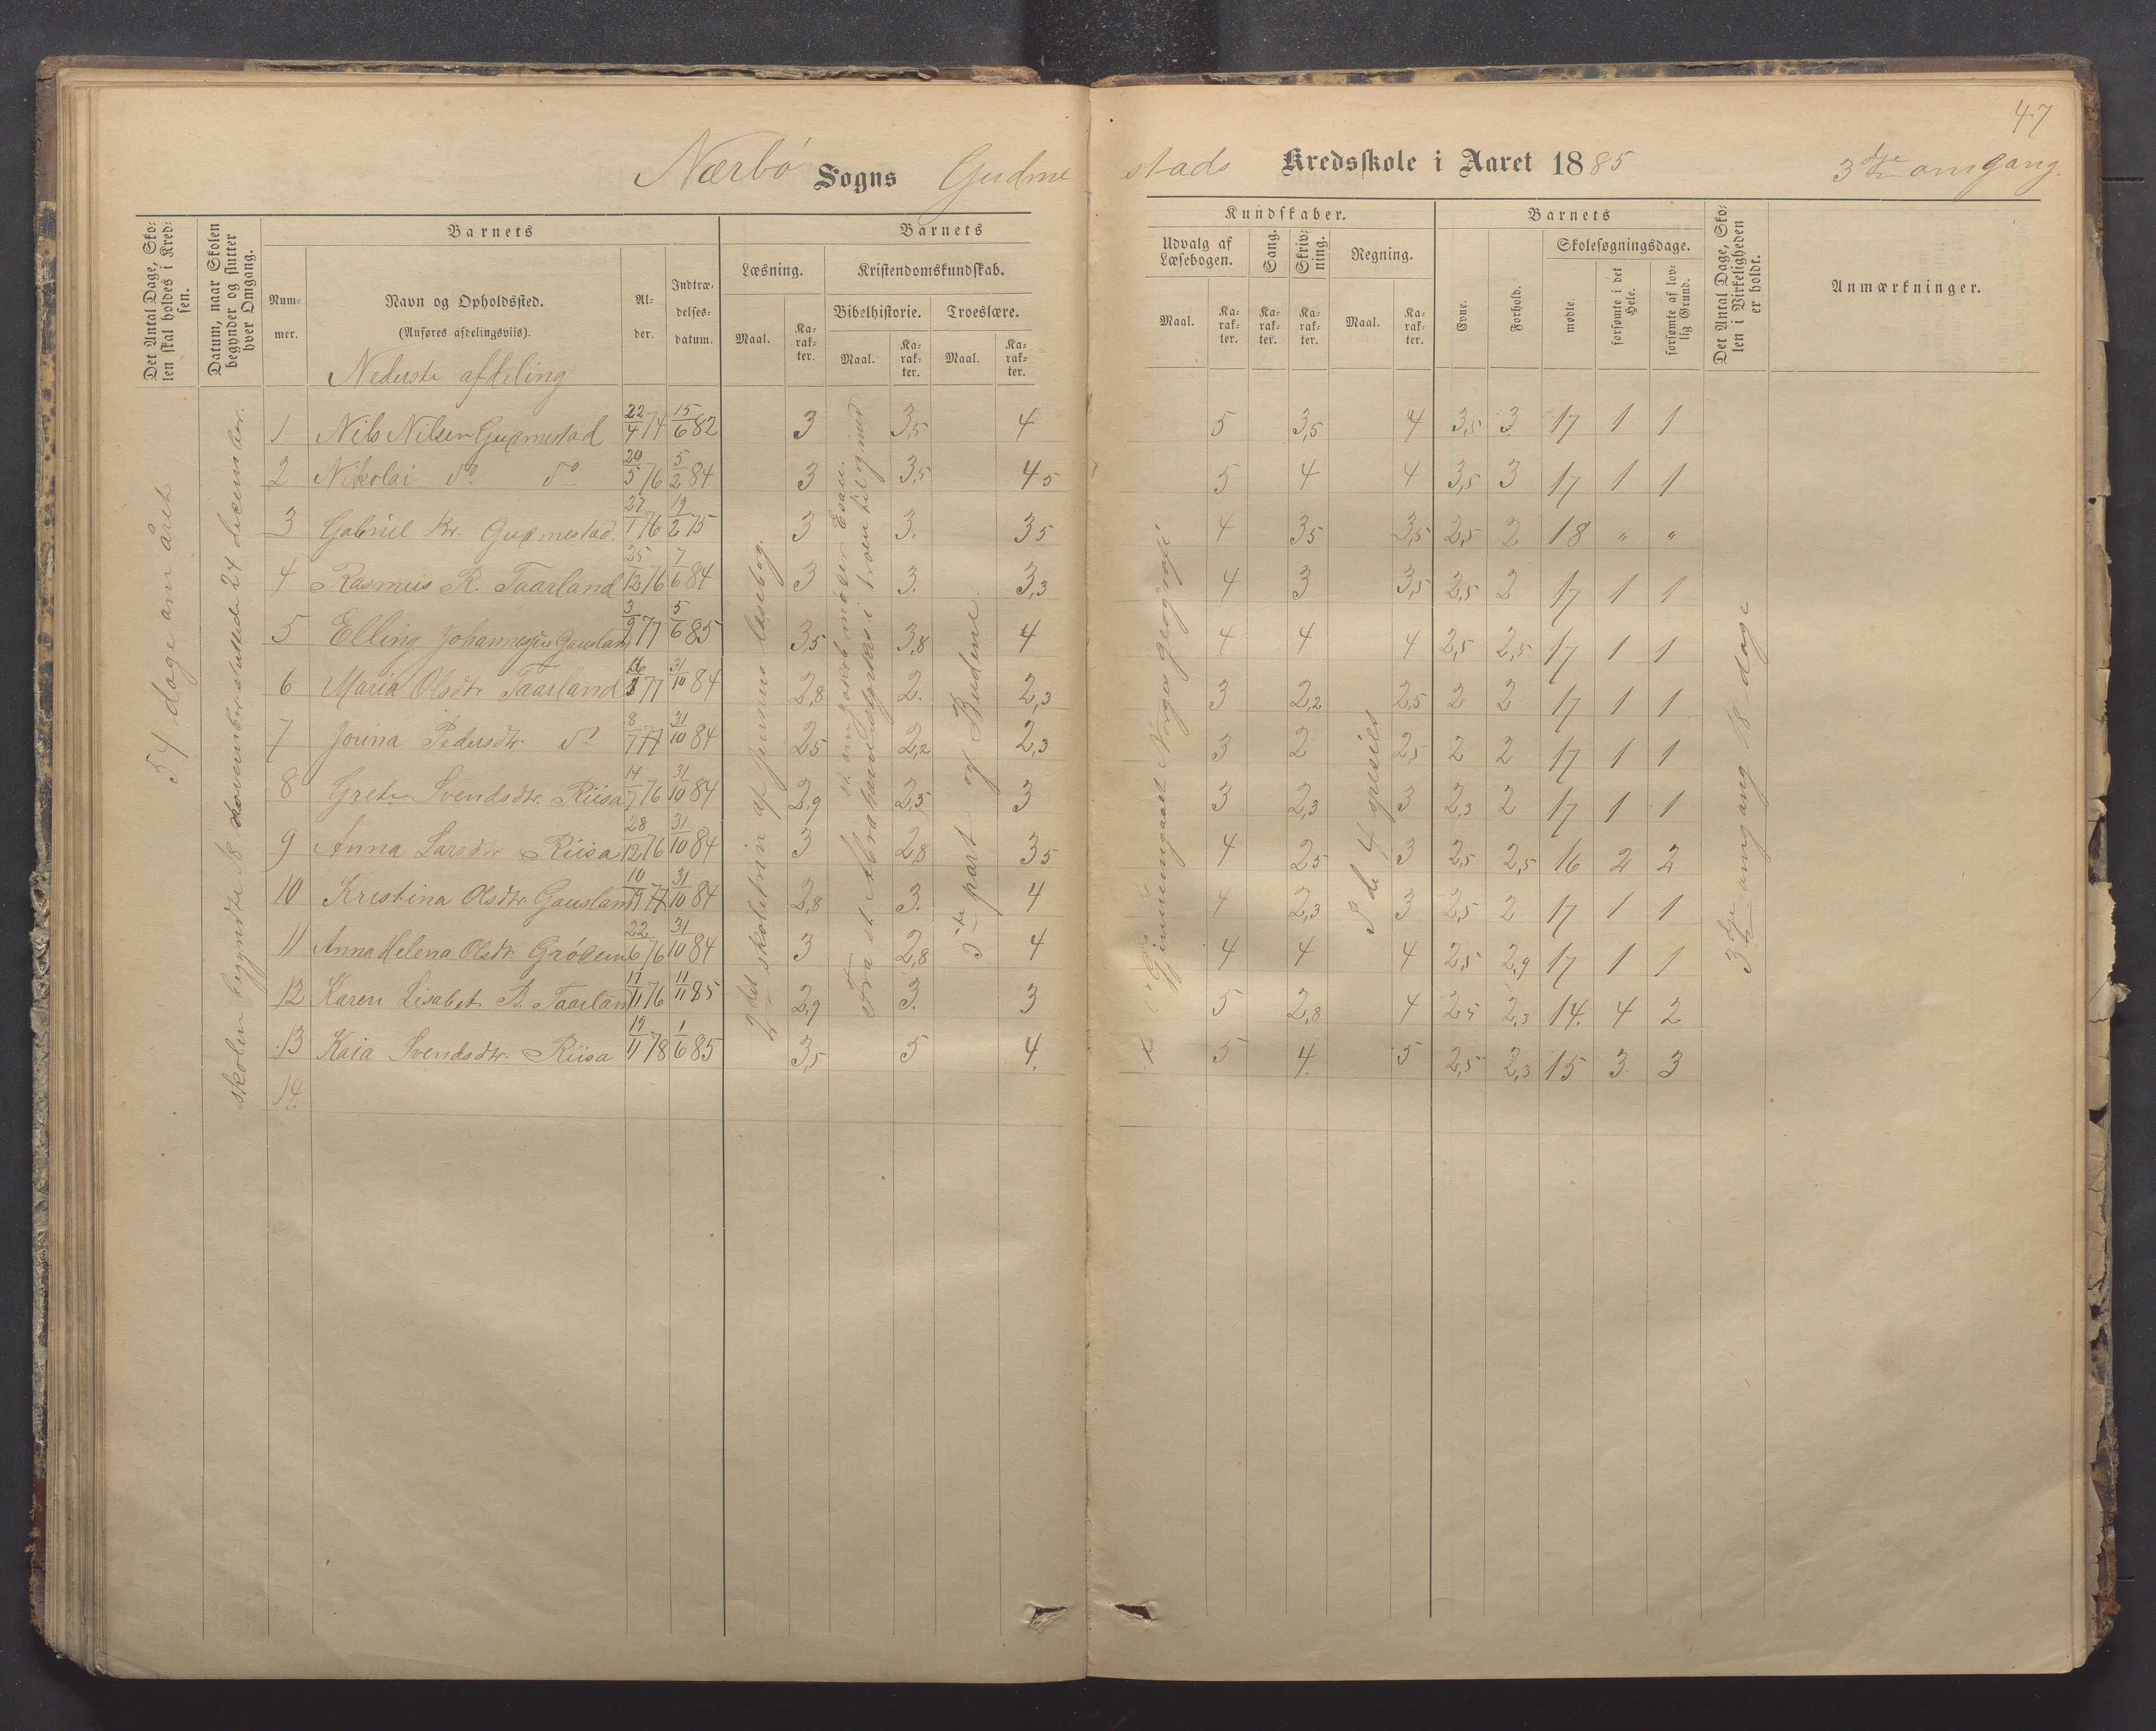 47
Nærbö Sogns Gudmestads Kredsskole i Aaret 1885 3dje omgang.
Det Antal Dage, Skolen skal holdes i Kredsen.
Datum, naar Skolen begynder og slutter hver Omgang.
Barnets
Nummer.
Navn og Opholdssted.
(Anføres afdelingsviis).
Alder.
Indtrædelsesdatum.
Barnets Kundskaber.
Læsning.
Maal.
Karakter.
Kristendomskundskab.
Bibelhistorie.
Maal.
Karakter.
Troeslære.
Maal.
Karakter.
Udvalg af Læsebogen.
Maal.
Karakter.
Sang.
Karakter.
Skrivning.
Karakter.
Regning.
Maal.
Karakter.
Barnets
Evne.
Forhold.
Skolesøgningsdage.
mødte.
forsømte i det Hele.
forsømte af lovlig Grund.
Det Antal Dage, Skolen i Virkeligheden er holdt.
Anmærkninger.
Nederste afdeling
54 dage om året
skolen begyndte 18 november sluttede 24 december.
2det skoletrin af Jensens læsebog.
Fra et Abraham dyrkes i troen til og med
st. om Jakob møder Esau.
5te part og Budene
Gjennemgaaet Norges geografi
I de 4 spesies
3dje omgang 18 dage
1 Nils Nilsen Gudmestad 22/4 74 15/6 82 3 3,5 4 5 3,5 4 3,5 3 17 1 1
2 Nikolai do do 20/5 76 5/2 84 3 3,5 4 5 5 4 4 3,5 3 17 1 1
3 Gabriel Kr. Gudmestad. 27/1 76 19/2 75 3 3. 3 5 4 3 5 3,5 2,5 2 18 " "
4 Rasmus R. Taarland 25/12 76 7/6 84 3 3. 3,3 4 3 3,5 2,5 2 17 1 1
5 Elling Johannesen Gausland 3/9 77 5/6 85 3,5 3,8 4 4 4 4 2,5 2,5 17 1 1
6 Maria Olsdtr Taarland 16/8 77 31/10 84 2,8 2. 2,3 3 2,2 2,5 2 2 17 1 1
7 Jorina Pedersdtr. do 8/7 77 31/10 84 2 5 2,2 2,3 3 2 2,5 2 2 17 1 1
8 Grete Svendsdtr. Riisa 14/7 76 31/10 84 2,9 2,5 3 3 2,3 3 2,3 2 17 1 1
9 Anna Larsdtr Riisa 28/12 76 31/10 84 3 2,8 3 5 4 2 5 3 2,5 2,5 16 2 2
10 Kristina Olsdtr. Gausland 10/9 77 31/10 84 2,8 3. 4 4 2,3 3 2,5 2 17 1 1
11 Anna Helena Olsdtr. Gröden 22/6 76 31/10 84 3 2,8 4 4 4 4 2,5 2,9 17 1 1
12 Karen Lisabet B. Taarland 17/11 76 11/11 85 2,9 3. 3 5 2,8 4 2 5 2,3 14. 4 2
13 Kaia Svendsdtr. Riisa 19/11 78 1/6 85 3,5 5 4. 5 4. 5 2,5 2,3 15 3 3
14